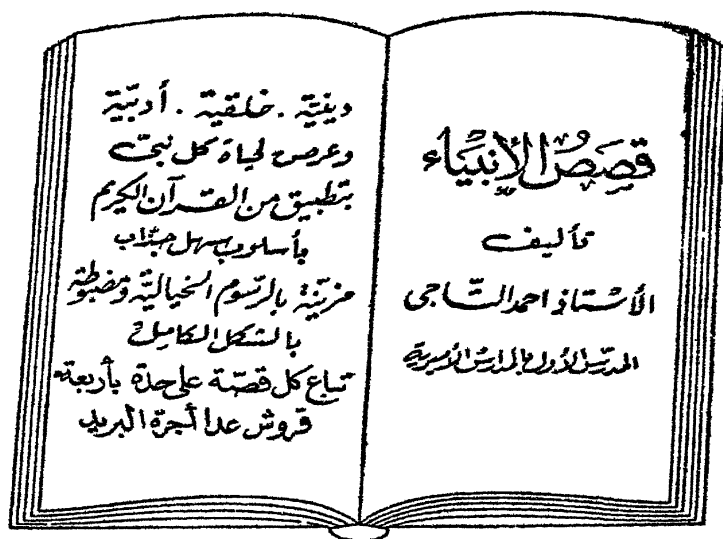 قصص الأنبياء
تأليف
الأستاذ احمد التاجى
المدرس الأول بالمدارس الأميرية
دينيّة . خلقية . أدبيّة
وعرض لحياة كل نبىّ
بتطبيق من القرآن الكريم
بأسلوب سهل جذاب
مزيّنة بالرّسوم الخياليّة ومضبوطة
بالشكل الكامل
تباع كل قصّة على حدة بأربعة
قروش عدا أجرة البريد